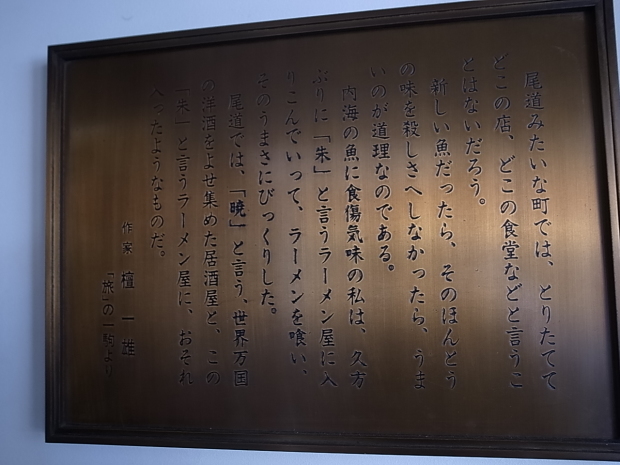 尾道みたいな町では、とりたてて
どこの店、どこの食堂などと言うこ
とはないだろう。
新しい魚だったら、そのほんとう
の味を殺しさへしなかったら、うま
いのが道理なのである。
内海の魚に食傷気味の私は、久方
ぶりに「朱」と言うラーメン屋に入
りこんでいって、ラーメンを喰い、
そのうまさにびっくりした。
尾道では、「暁」と言う、世界万国
の洋酒をよせ集めた居酒屋と、この
「朱」と言うラーメン屋に、おそれ
入ったようなものだ。
作家 檀一雄
「旅」の一駒より